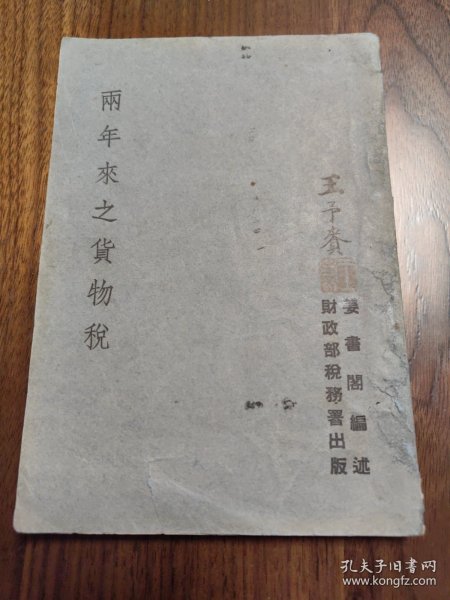 姜書閣編述
財政部稅務署出版
兩年來之貨物稅
王予賚
孔夫子旧书网
www.kongfz.com